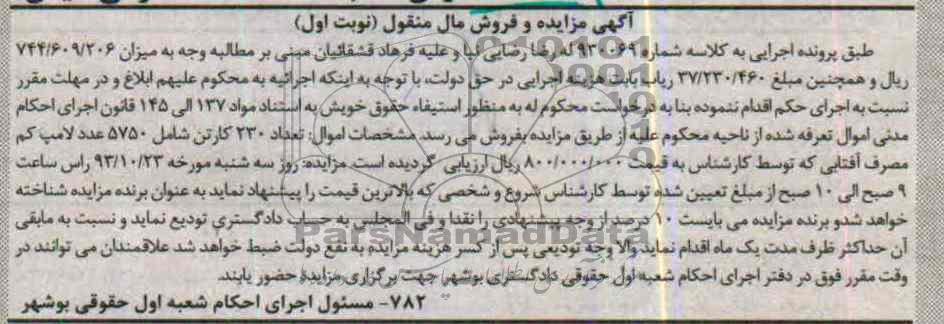 آگهی مزایده و فروش مال منقول (نوبت اول)
طبق پرونده اجرایی به کلاسه شماره ۹۳۰۰۶۹ له رضا رضایی نیا و علیه فرهاد قشقائیان مبنی بر مطالبه وجه به میزان ۷۴۴/۶۰۹/۲۰۶
ریال و همچنین مبلغ ۳۷/۲۳۰/۴۶۰ ریال بابت هزینه اجرایی در حق دولت، با توجه به اینکه اجرائیه به محکوم علیهم ابلاغ و در مهلت مقرر
نسبت به اجرای حکم اقدام ننموده بنا به درخواست محکوم له به منظور استیفاء حقوق خویش به استناد مواد ۱۳۷ الی ۱۴۵ قانون اجرای احکام
مدنی اموال تعرفه شده از ناحیه محکوم علیه از طریق مزایده بفروش می رسد. مشخصات اموال: تعداد ۲۳۰ کارتن شامل ۵۷۵۰ عدد لامپ کم
مصرف آفتابی که توسط کارشناس به قیمت ۸۰۰/۰۰۰/۰۰۰ ریال ارزیابی گردیده است. مزایده: روز سه شنبه مورخه ۹۳/۱۰/۲۳ راس ساعت
۹ صبح الی ۱۰ صبح از مبلغ تعیین شده توسط کارشناس شروع و شخصی که بالاترین قیمت را پیشنهاد نماید به عنوان برنده مزایده شناخته
خواهد شد و برنده مزایده می بایست ۱۰ درصد از وجه پیشنهادی را نقدا و فی المجلس به حساب دادگستری تودیع نماید و نسبت به مابقی
آن حداکثر ظرف مدت یک ماه اقدام نماید والا وجه تودیعی پس از کسر هزینه مزایده به نفع دولت ضبط خواهد شد علاقمندان می توانند در
وقت مقرر فوق در دفتر اجرای احکام شعبه اول حقوقی دادگستری بوشهر جهت برگزاری مزایده حضور یابند.
۷۸۲- مسئول اجرای احکام شعبه اول حقوقی بوشهر
ParsNamadData